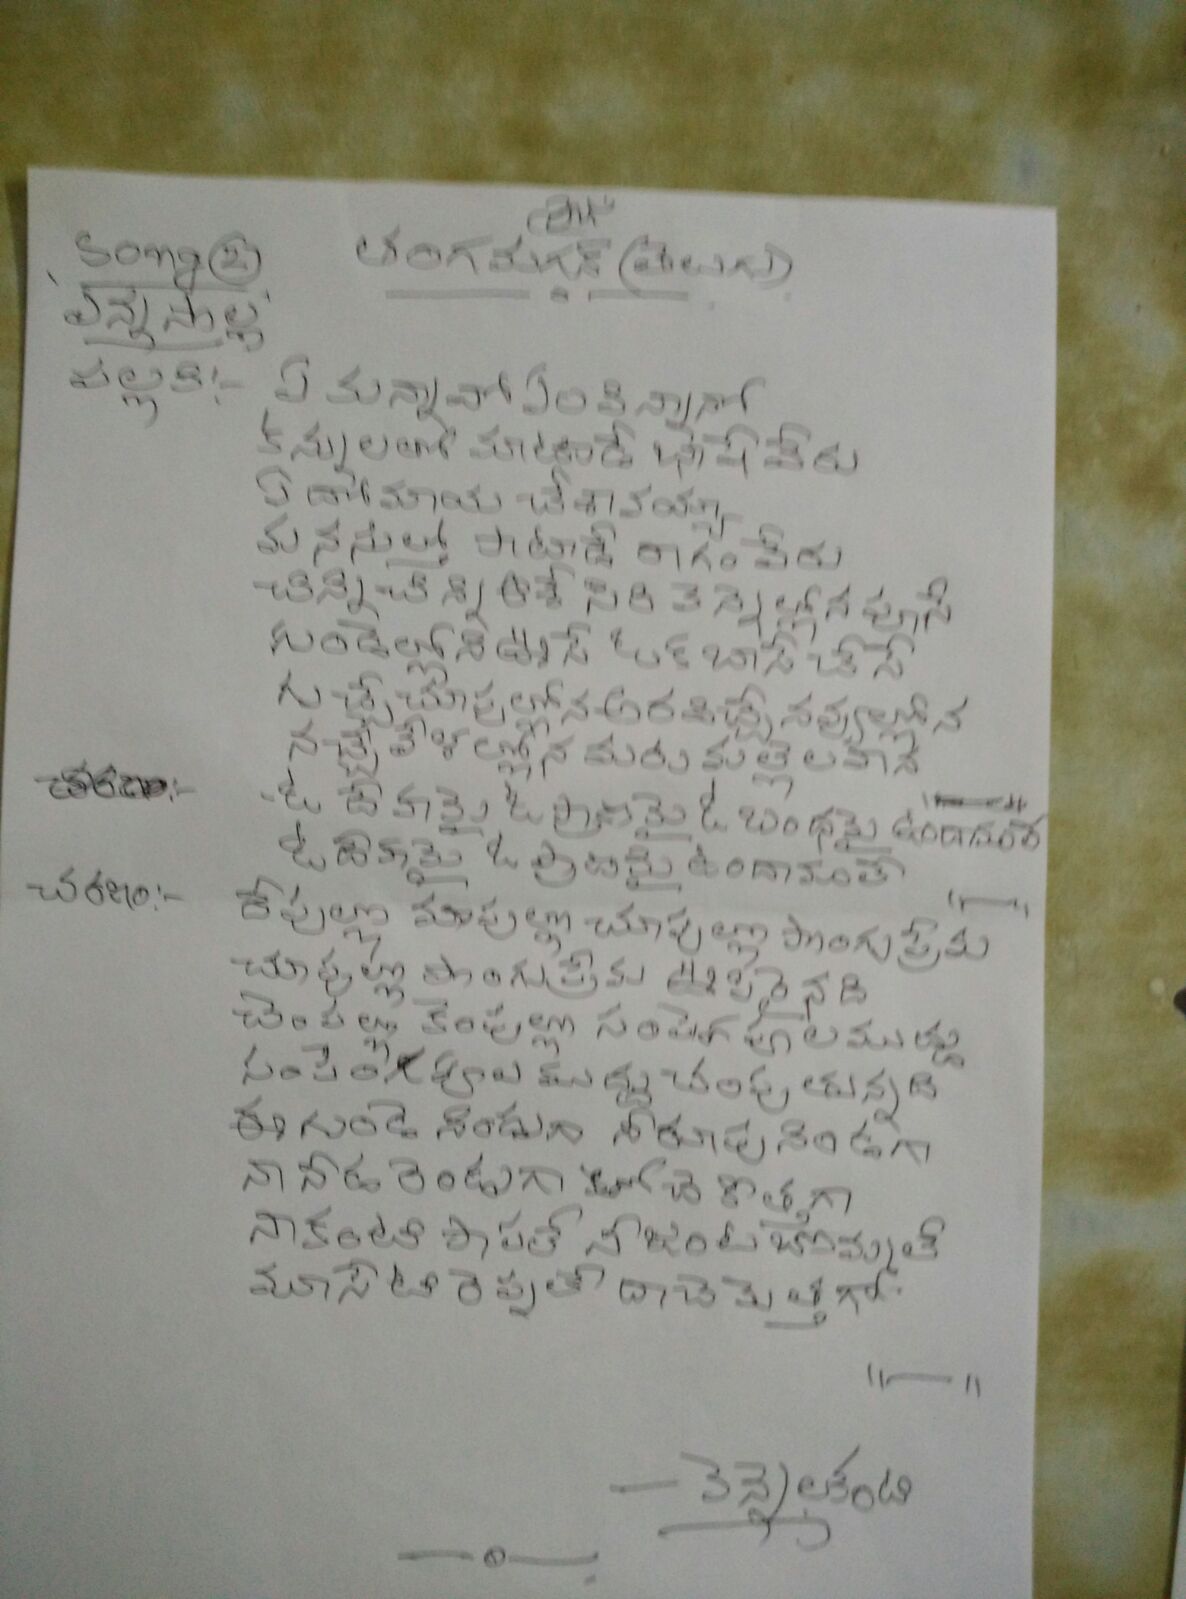 శ్రీ
Song ②
తంగమగన్ (తెలుగు)
ఎన్న సొల్ల
పల్లవి:- ఏ మన్నావో ఏం విన్నానో
కన్నులతో మాటాడే భాషే వేరు
ఏ దో మాయ చేశావయ్యా
మనసుల్తో పాటాడే రాగం వేరు
చిన్ని చిన్ని ఆశే సిరి వెన్నెల్లోన పూసే
గుండెల్లోని ఊసే ఒక బాసే చేసే
గుచ్చే చూపుల్లోన అర విచ్చే నవ్వుల్లోన
నచ్చే వేళల్లోన మరు మల్లెల వాన
"——"
చరణం:- ఓ దేహమై ఓ ప్రాణమై ఓ బంధమై ఉందామంతే
ఓ దేహమై ఓ ప్రాణమై ఉందామంతే
"——"
చరణం:- రేపుల్లా మాపుల్లా చూపుల్లా పొంగు ప్రేమ
చూపుల్లో పొంగు ప్రేమ ఊపిరైనది
చెంపల్లో కెంపుల్లా సంపెంగ పూల ముద్దు
సంపెంగ పూల ముద్దు చంపుతున్నది
ఈ గుండె నిండుగా నీ రూపు నిండగా
నా నీడ రెండుగా తోచె కొత్తగా
నా కంటి పాపతే నీ జంట బొమ్మతే
మూసేటి రెప్పతో దాచె మెత్తగో
"——"
— వెన్నెలకంటి